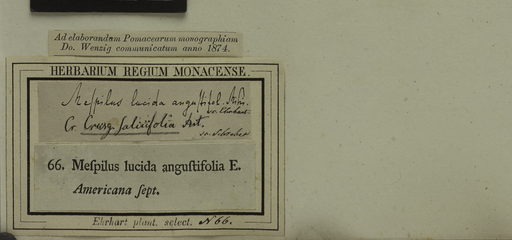 Ad elaborandam Pomacearum monographiam
Do. Wenzig communicatum anno 1874.
HERBARIUM REGIUM MONACENSE.
Meſpilus lucida anguſtifol.
Cr. Crusg. salicifolia Ait.
66. Meſpilus lucida anguſtifolia E.
Americana ſept.
Ehrhart plant. select. N 66.